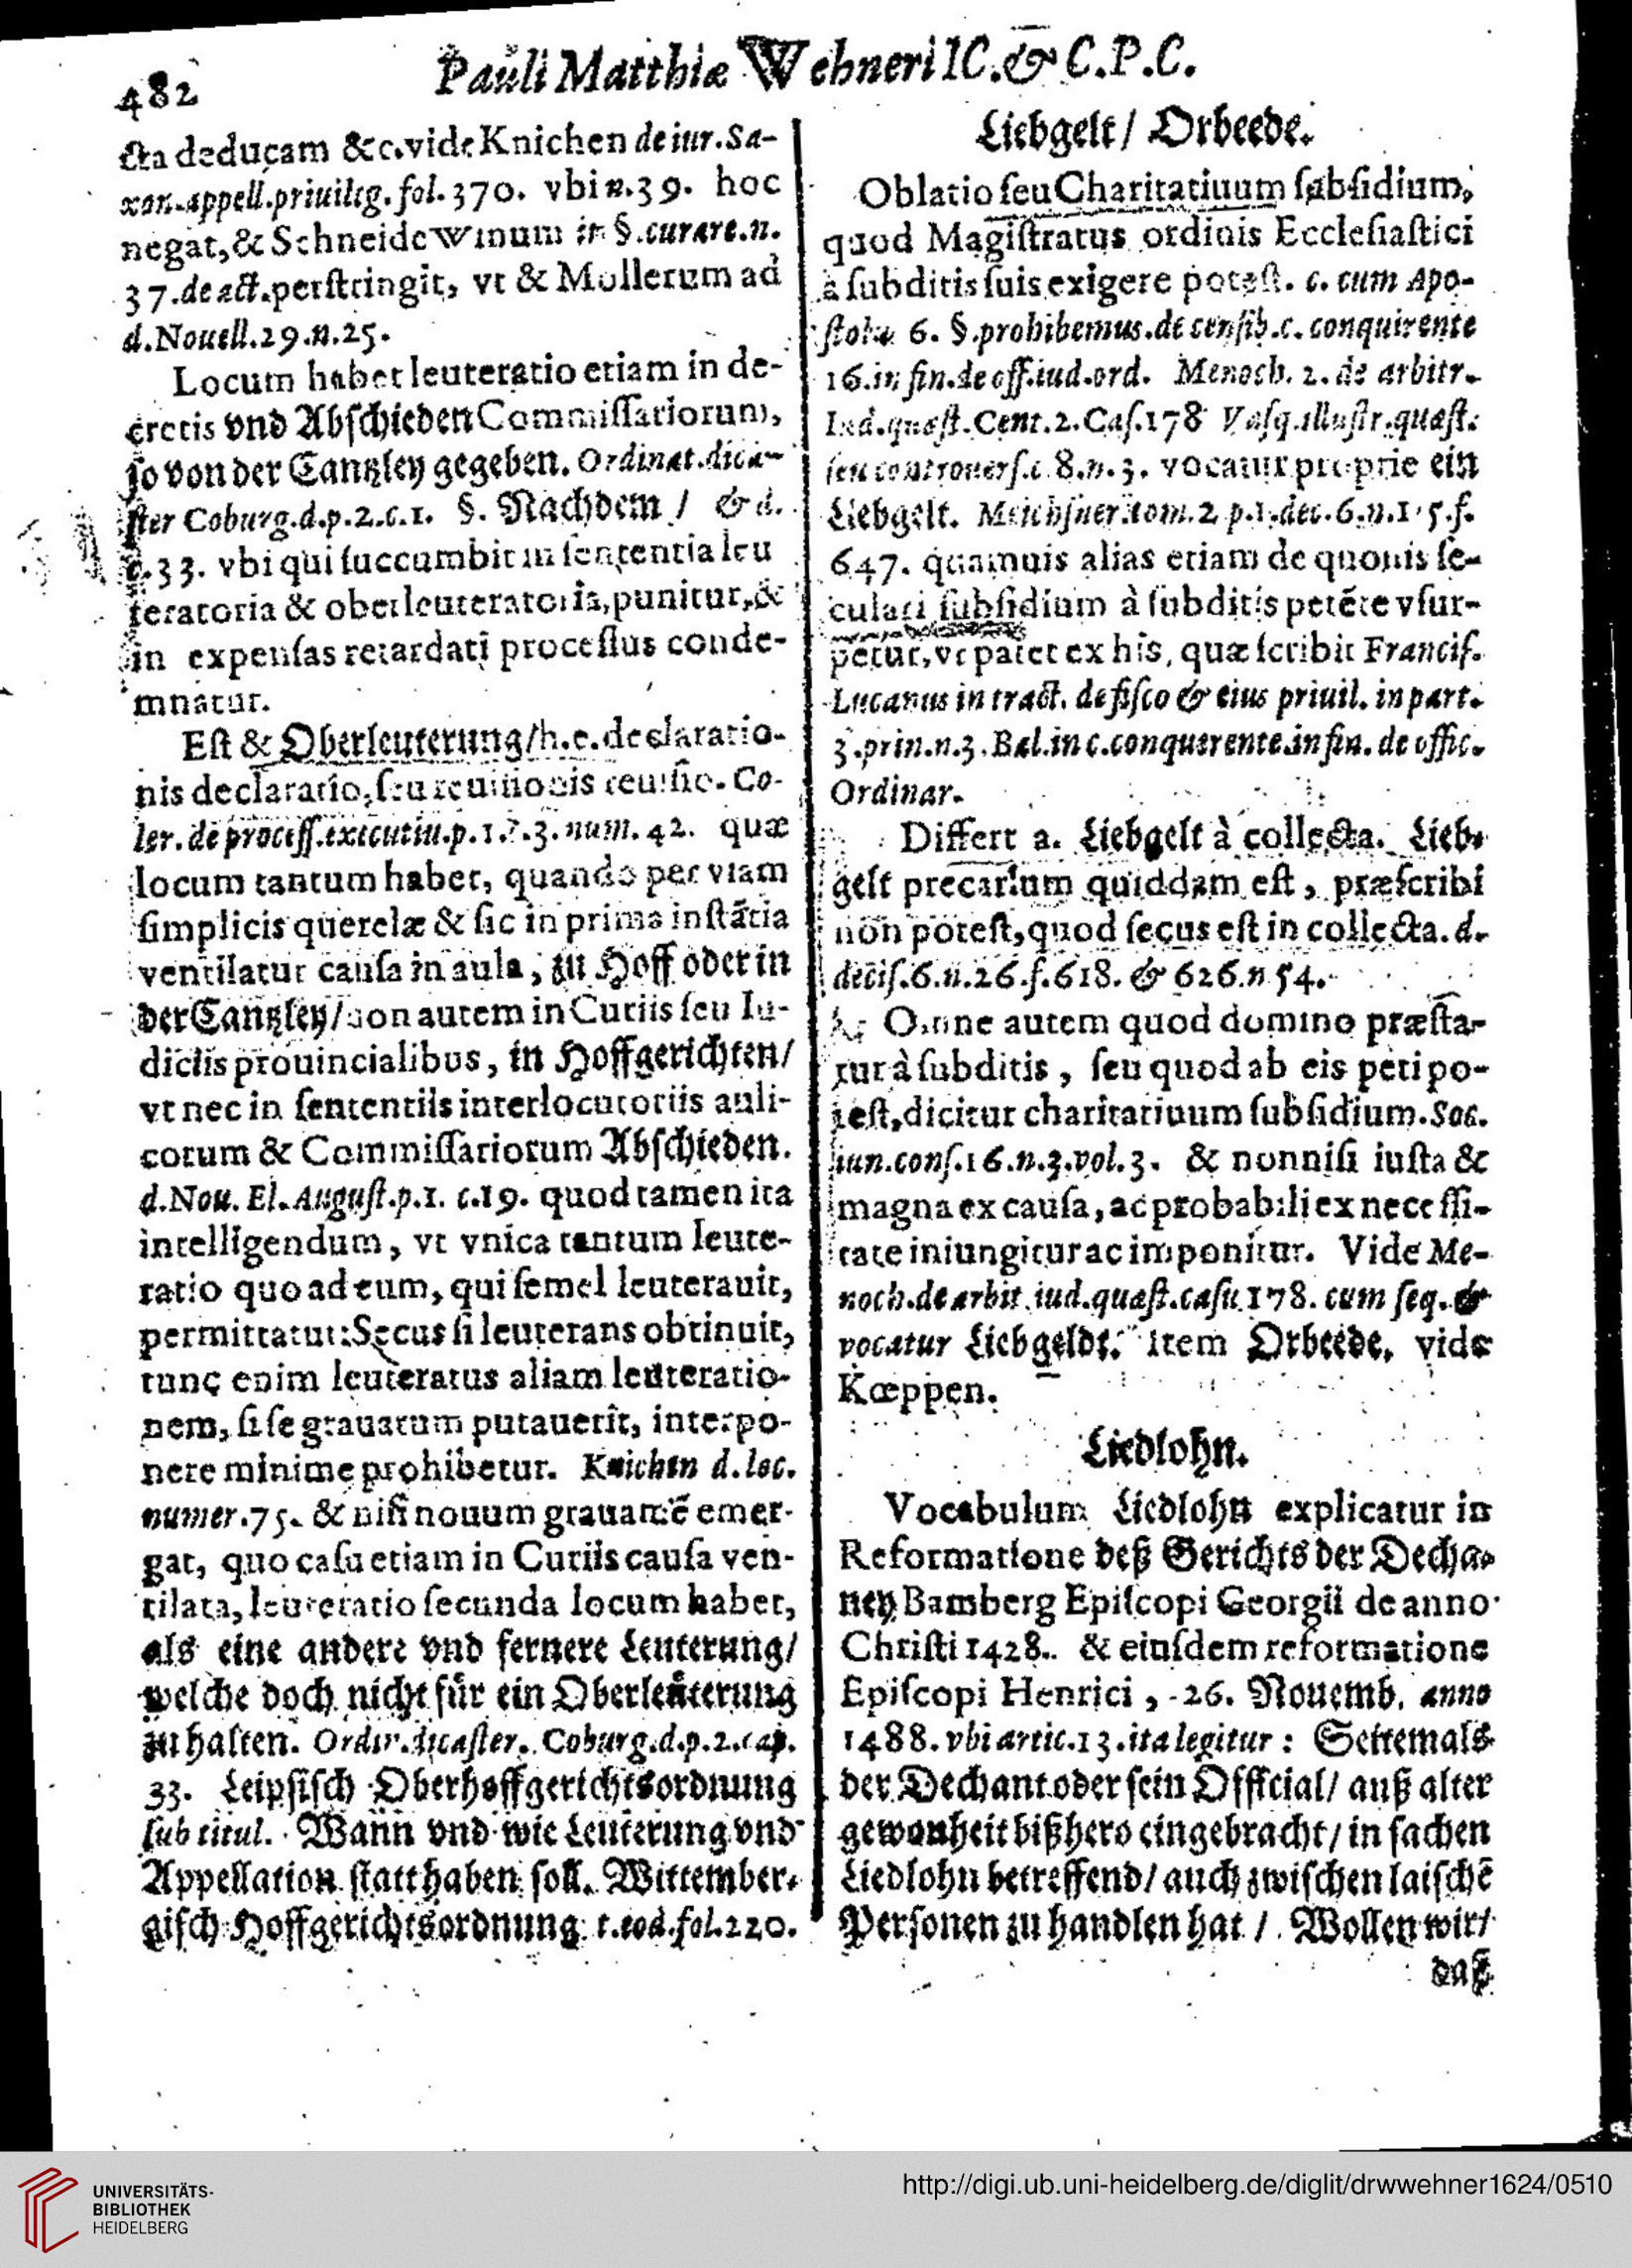 482
Pauli Matthiæ Wehneri IC. & C.P.C.
cta deducam &c. vide Knichen de iur. Sa-
xon. appell. priuileg. fol. 370. vbi n. 39. hoc
negat, & Schneidewinum in §. curare. n.
37. de act. perstringit, vt & Mollerum ad
d. Nouell. 29. n. 25.
Locum habet leuteratio etiam in de-
cretis vnd Abschieden Commissariorum,
so von der Cantzley gegeben. Ordinat. dica-
ster Coburg. d. p. 2. c. 1. §. Nachdem / & d.
c. 33. vbi qui succumbit in sententia leu
teratoria & oberleuteratoria, punitur, &
in expensas retardati processus conde-
mnatur.
Est & Oberleuterung / h. e. declaratio-
nis declaratio, seu reuisionis reuisio. Co-
ler. de process. executiu. p. 1. c. 3. num. 42. quæ
locum tantum habet, quando per viam
simplicis querelæ & sic in prima instãtia
ventilatur causa in aula, zu Hoff oder in
der Cantzley / non autem in Curiis seu Iu-
diciis prouincialibus, in Hoffgerichten /
vt nec in sententiis interlocutoriis auli-
corum & Commissariorum Abschieden.
d. Nou. El. August. p. 1. c. 19. quod tamen ita
intelligendum, vt vnica tantum leute-
ratio quo ad eum, qui semel leuterauit,
permittatur: Secus si leuterans obtinuit,
tunc enim leuteratus aliam leuteratio-
nem, si se grauatum putauerit, interpo-
nere minime prohibetur. Knichen d. loc.
numer. 75. & nisi nouum grauamẽ emer-
gat, quo casu etiam in Curiis causa ven-
tilata, leuteratio secunda locum habet,
als eine andere vnd fernere Leuterung /
welche doch nicht für ein Oberleuterung
zu halten. Ordin. dicaster. Coburg. d. p. 2. cap.
33. Leipsisch Oberhoffgerichtsordnung
sub titul. Wann vnd wie Leuterung vnd
Appellation statt haben soll. Wittember-
gisch Hoffgerichtsordnung t. eod. fol. 220.
Liebgelt / Orbeede.
Oblatio seu Charitatiuum subsidium,
quod Magistratus ordinis Ecclesiastici
à subditis suis exigere potest. c. cum Apo-
stolus 6. §. prohibemus. de censib. c. conquirente
16. in fin. de off. iud. ord. Menoch. 2. de arbitr.
Iud. quæst. Cent. 2. Cas. 178 Vasq. illustr. quæst.
seu controuers. c. 8. n. 3. vocatur proprie ein
Liebgelt. Meichsner. tom. 2. p. 1. dec. 6. n. 15. f.
647. quamuis alias etiam de quouis se-
culari subsidium à subditis petẽte vsur-
petur, vt patet ex his, quæ scribit Francis.
Lucanus in tract. de fisco & eius priuil. in part.
3. prin. n. 3. Bal. in c. conquerente. in fin. de offic.
Ordinar.
Differt a. Liebgelt à collecta. Lieb-
gelt precarium quiddam est, præscribi
non potest, quod secus est in collecta. d.
decis. 6. n. 26. f. 618. & 626. n 54.
Omne autem quod domino præsta-
tur à subditis, seu quod ab eis peti po-
test, dicitur charitatiuum subsidium. Soc.
iun. cons. 16. n. 3. vol. 3. & nonnisi iusta &
magna ex causa, ac probabili ex necessi-
tate iniungitur ac imponitur. Vide Me-
noch. de arbit. iud. quæst. casu 178. cum seq. &
vocatur Liebgeldt. Item Orbeede, vide
Kœppen.
Liedlohn.
Vocabulum Liedlohn explicatur in
Reformatione deß Gerichts der Decha-
ney Bamberg Episcopi Georgii de anno
Christi 1428. & eiusdem reformatione
Episcopi Henrici, 26. Nouemb. anno
1488. vbi artic. 13. ita legitur: Seitemals
der Dechant oder sein Official / auß alter
gewonheit bißhero eingebracht / in sachen
Liedlohn betreffend / auch zwischen laischẽ
Personen zu handlen hat / Wollen wir /
daß
UNIVERSITÄTS-
BIBLIOTHEK
HEIDELBERG
http://digi.ub.uni-heidelberg.de/diglit/drwwehner1624/0510